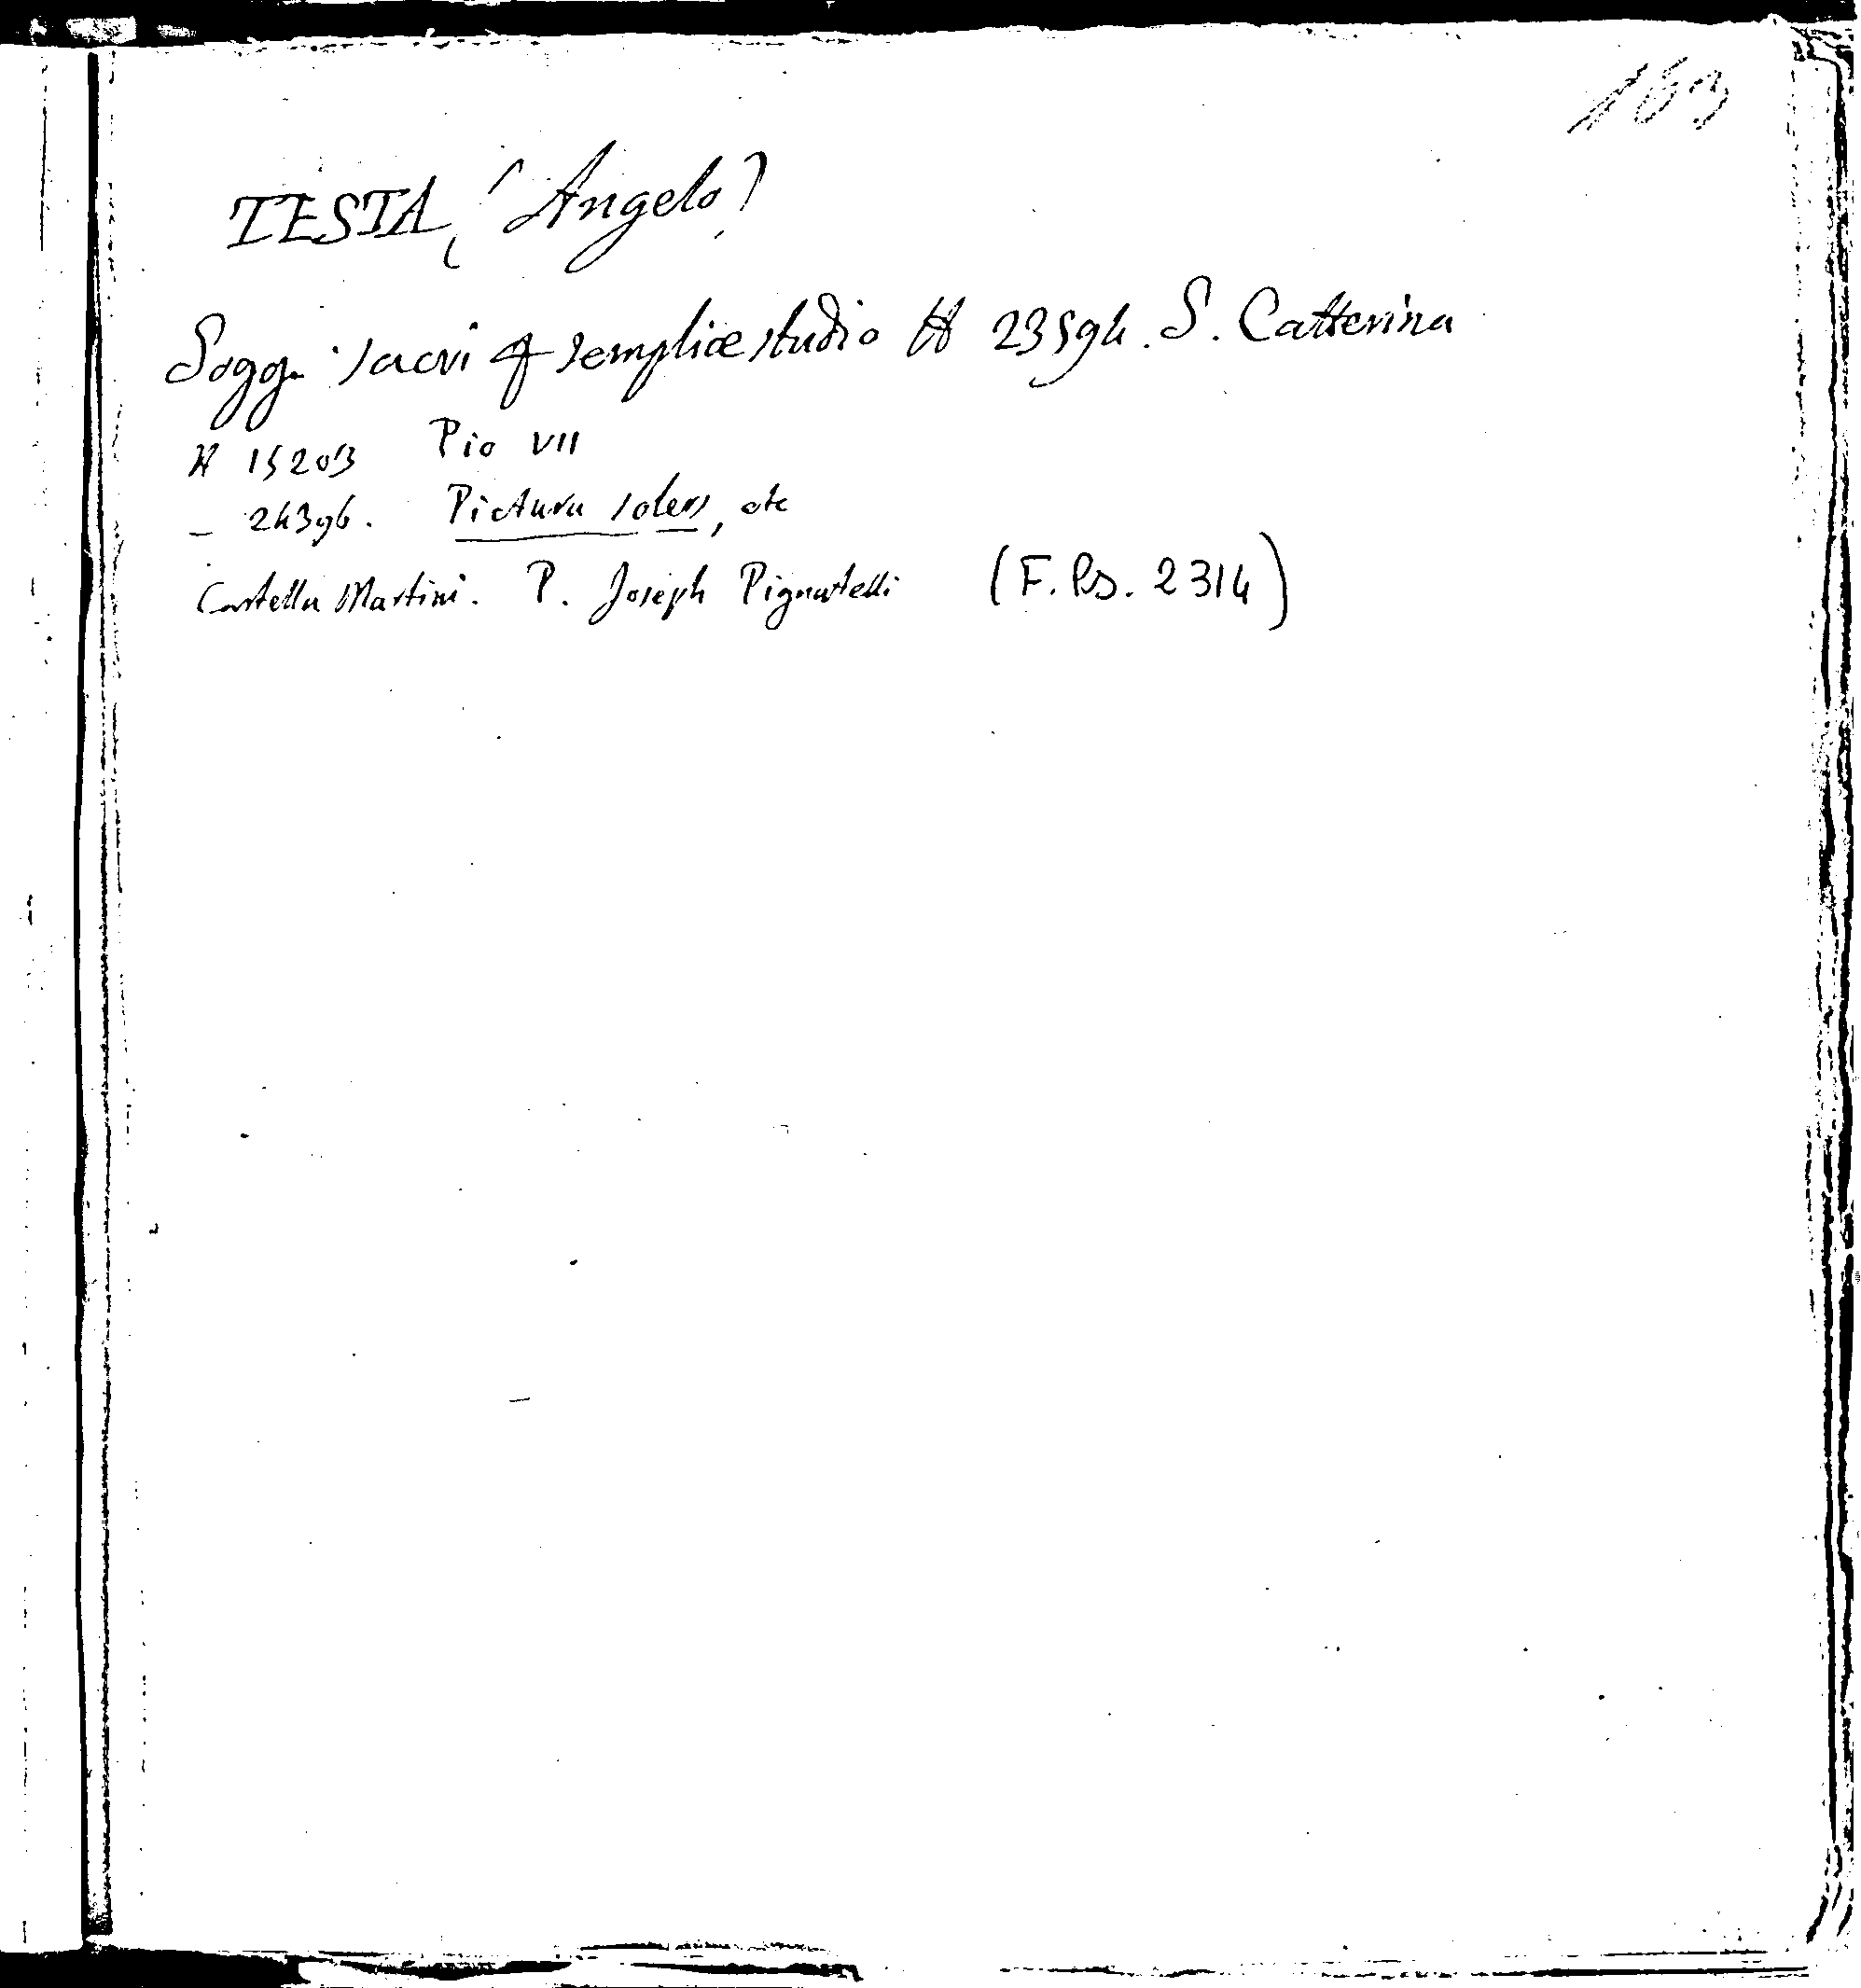 163
TESTA, (Angelo)
Sogg. sacri 4 semplice studio H 23594. S. Catterina
H 15203 Pio VII
— 24396. Pictura solers, etc
Cartella Martini. P. Joseph Pignatelli (F. Ps. 2314)